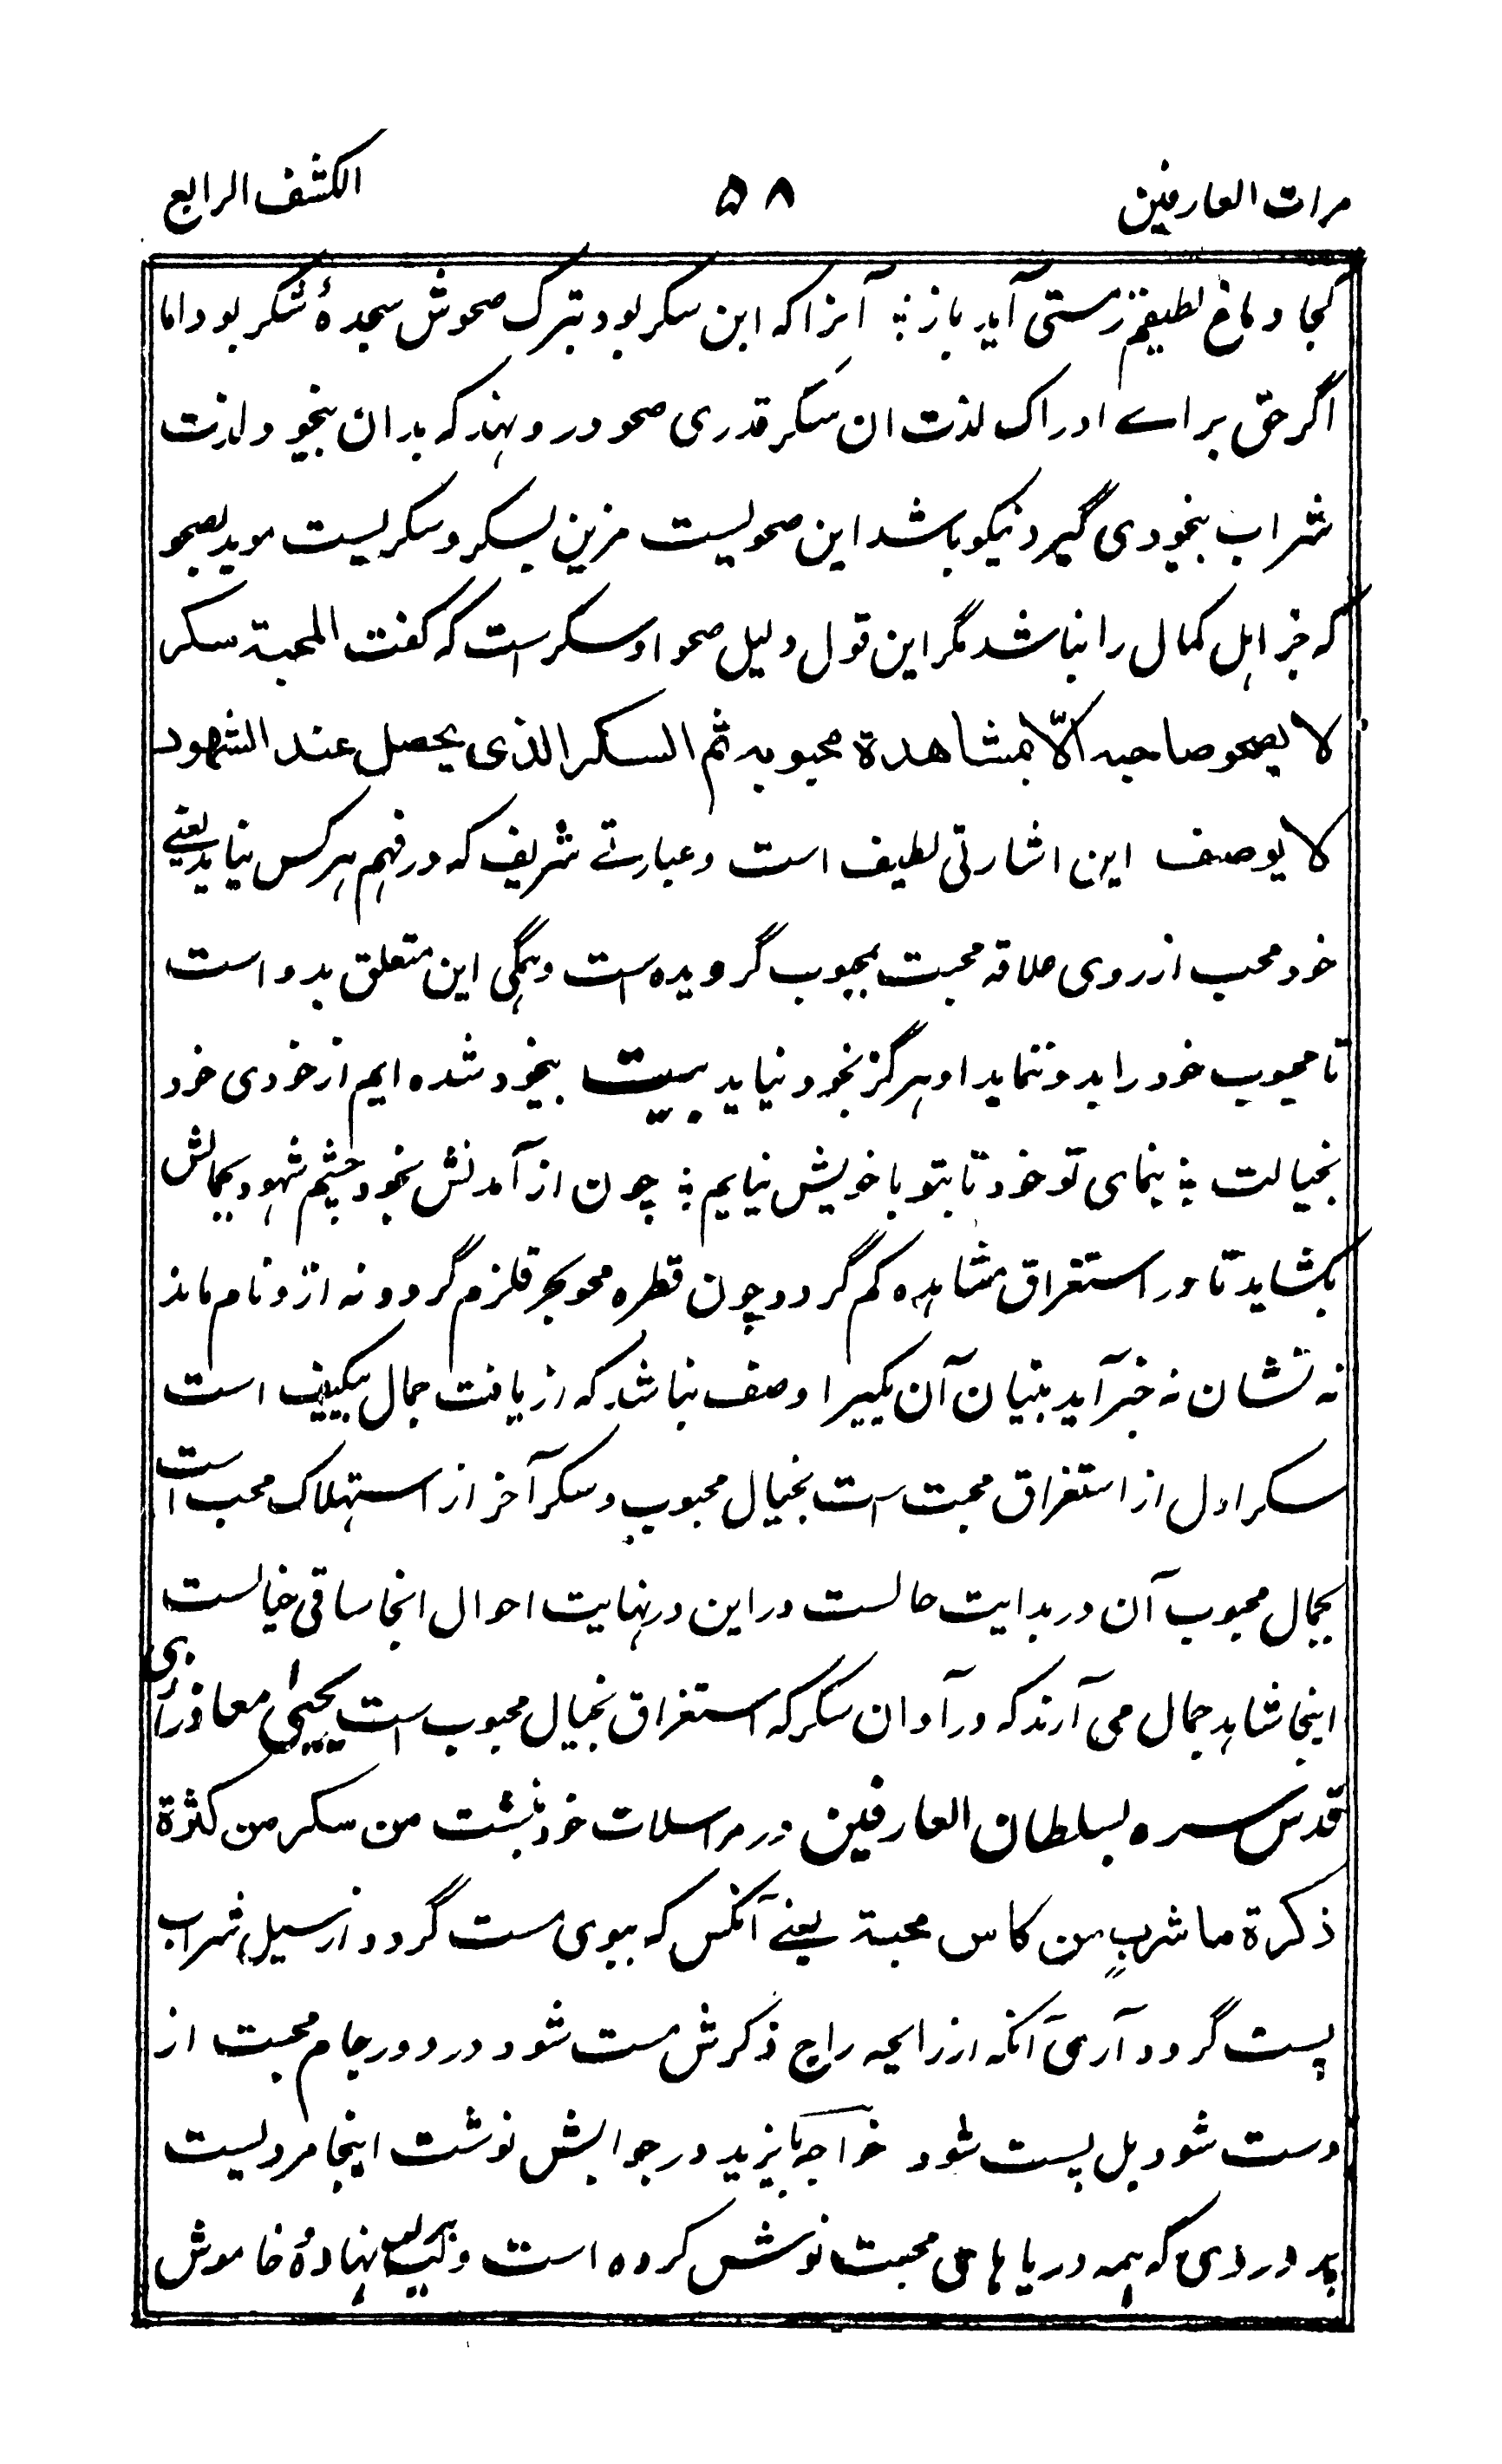 مرات العارفین ۵۸ الکشف الرابع
کجا دماغ لطیفم زمستی آید باز ؛ آنرا که این سکر بود بترک صحوش سجدهٔ شکر بود اما
اگر حق براے ادراک لذت ان سکر قدری صحو درو نهند که بدان بیخود لذت
شراب بیخودی گیرد نیکو باشد این صحولیست مزین بسکر و سکریست موید بصحو
که جز اہل کمال را نباشد مگر این قول دلیل صحو او سکرست که گفت المحبة سکر
لا یصحو صاحبه الّا بمشاهدة محبوبه ثم السکر الذی یحصل عند الشهود
لا یوصف این اشارتی لطیف است و عبارتے شریف که در فهم ہر کس نیاید یعنے
خود محب از روی علاقه محبت بمحبوب گرویده ست و ہمگی این متعلق بدو است
تا محبوب خود را بدو ننماید او ہرگز بخود نیاید بیت بیخود شده ایم از خودی خود
بخیالت ؛ بنمای تو خود تا بتو با خویش نیایم ؛ چون از آمدنش بخود چشم شهود بجمالش
بکشاید تا در استغراق مشاہده کم گردد چون قطره محو بحر قلزم گردد نه ازو نام ماند
نه نشان نه خبر آید بنیان آن یکیرا وصف نباشد که از یافت جمال بیکیف است
سکر اول از استغراق محبت ست بخیال محبوب و سکر آخر از استهلاک محب است
بجمال محبوب آن در بدایت حالست و راین در نهایت احوال انجا ساقی خیالست
اینجا شاہد جمال می آرند که در آوان سکر که استغراق بخیال محبوب است یحییٰ معاذ رازی
قدس سره بسلطان العارفین در مراسلات خود نبشت من سکر من کثرة
ذکرة ما شرب من کاس محبة یعنے آنکس که ببوی مست گردد از سیل شراب
پست گردد آرے آنکه از رایحه راح ذکرش مست شود در دور جام محبت از
دست شود بل پست شود خواجه بایزید در جوابش نوشت اینجا مردیست
که ہمه دریا ہای محبت نوش کرده است و لب بر لب نهادهٔ خاموش